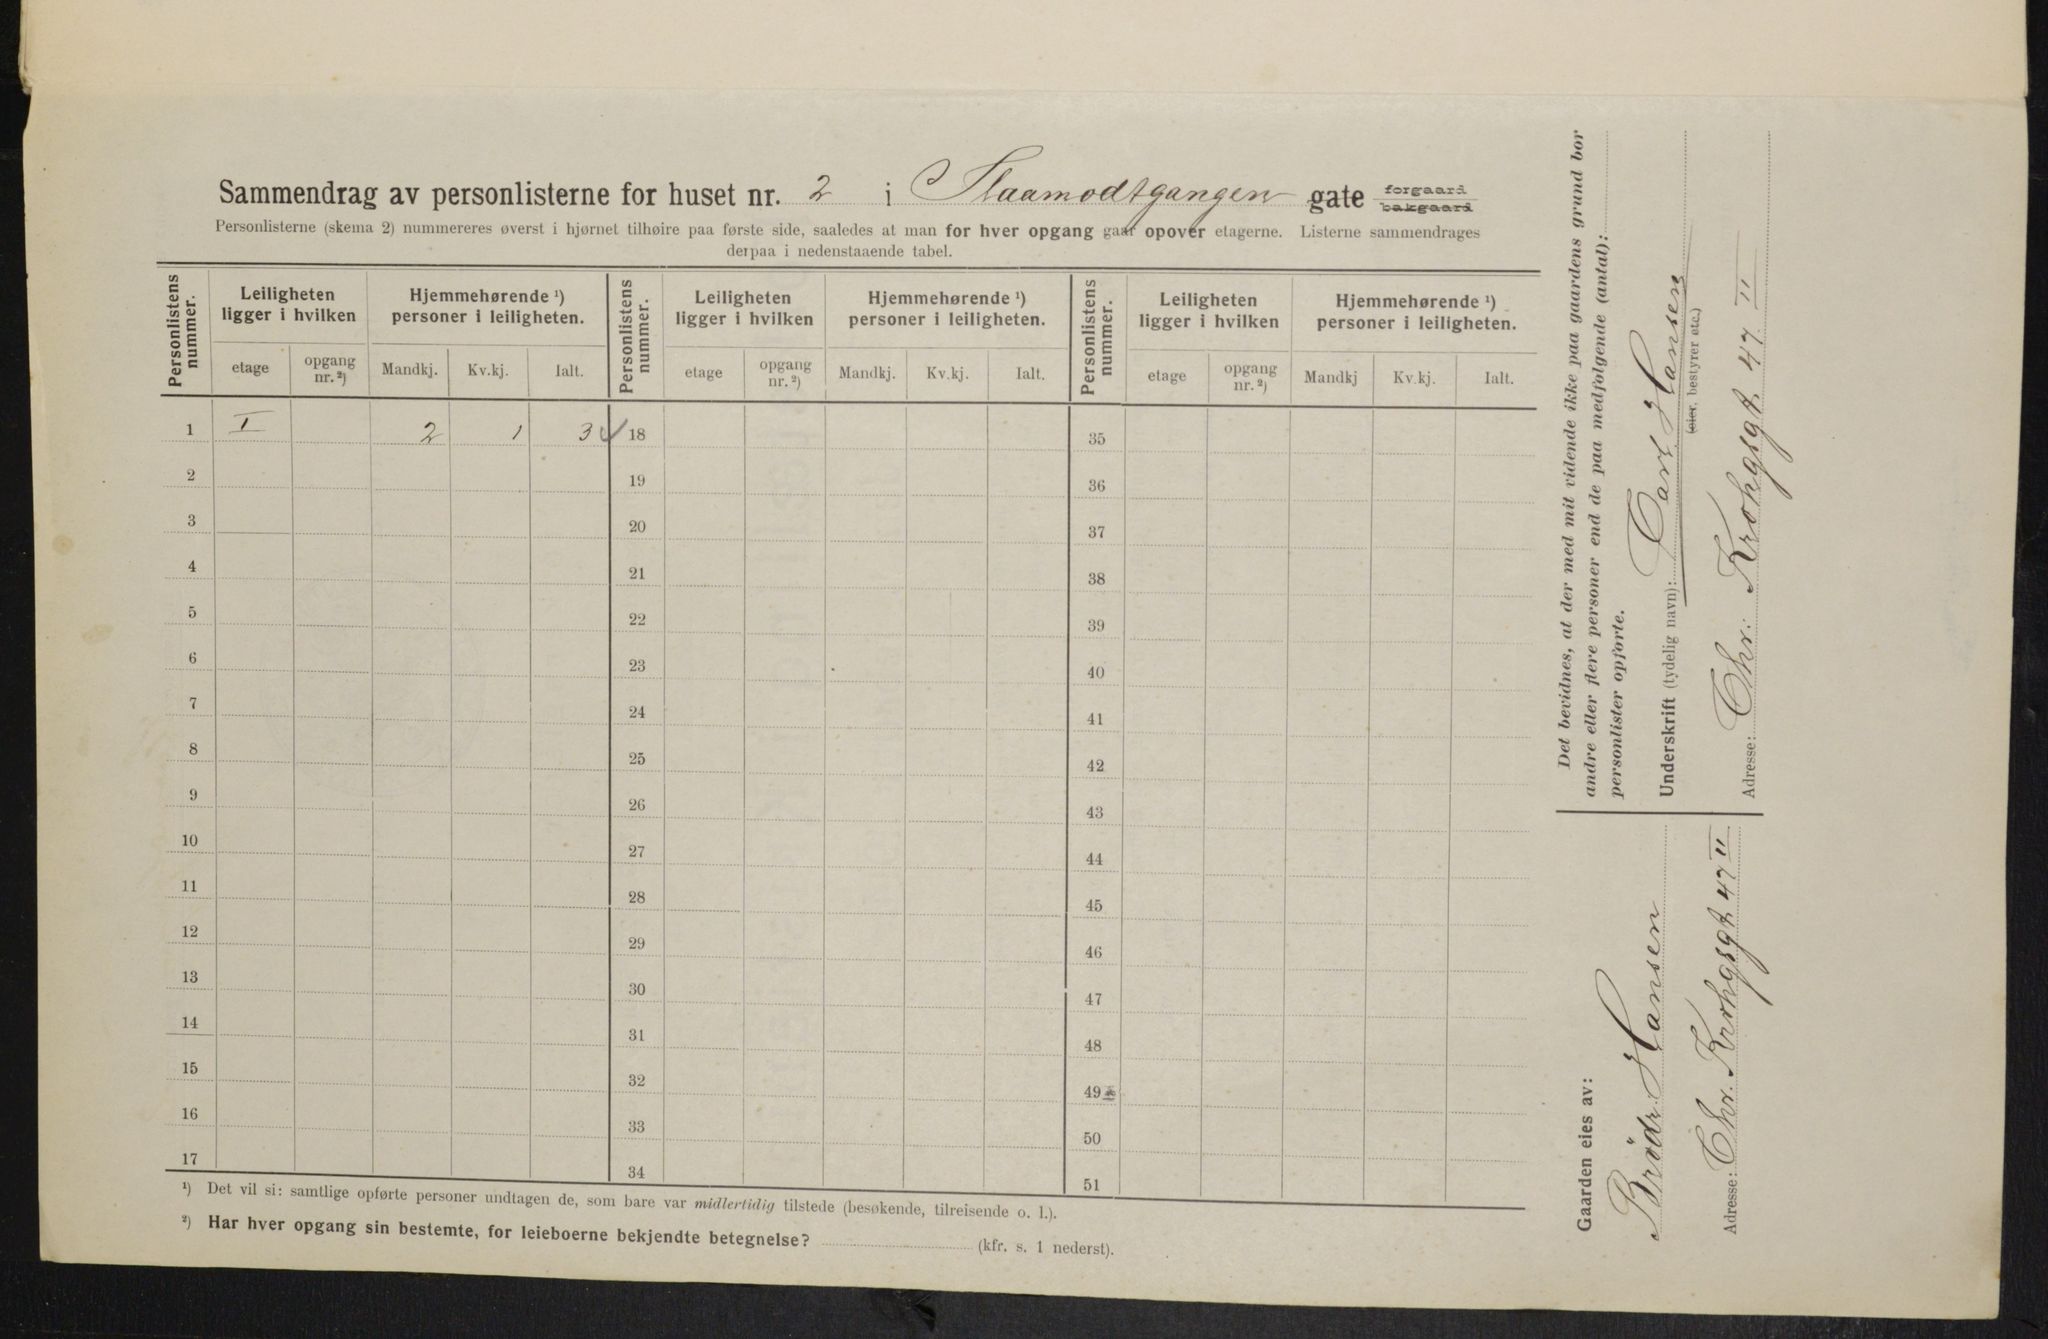 Sammendrag av personlisterne for huset nr. 2 i Slaamodtgangen gate forgaard bakgaard
Personlisterne (skema 2) nummereres øverst i hjørnet tilhøire paa første side, saaledes at man for hver opgang gaar opover etagerne. Listerne sammendrages
derpaa i nedenstaaende tabel.
Personlistens nummer. Leiligheten ligger i hvilken Hjemmehørende ¹) personer i leiligheten. Personlistens nummer. Leiligheten ligger i hvilken Hjemmehørende ¹) personer i leiligheten. Personlistens nummer. Leiligheten ligger i hvilken Hjemmehørende ¹) personer i leiligheten.
etage opgang nr. ²) Mandkj. Kv.kj. Ialt. etage opgang nr. ²) Mandkj. Kv.kj. Ialt. etage opgang nr. ²) Mandkj Kv.kj. Ialt.
1 I 2 1 3 18 35
2 19 36
3 20 37
4 21 38
5 22 39
6 23 40
7 24 41
8 25 42
9 26 43
10 27 44
11 28 45
12 29 46
13 30 47
14 31 48
15 32 49
16 33 50
17 34 51
¹) Det vil si: samtlige opførte personer undtagen de, som bare var midlertidig tilstede (besøkende, tilreisende o. l.).
²) Har hver opgang sin bestemte, for leieboerne bekjendte betegnelse? (kfr. s. 1 nederst).
Det bevidnes, at der med mit vidende ikke paa gaardens grund bor
andre eller flere personer end de paa medfølgende (antal):
personlister opførte.
Underskrift (tydelig navn): Carl Hansen
(eier, bestyrer etc.)
Adresse: Chr. Krohgsgt. 47 II
Gaarden eies av:
Brödr. Hansen
Adresse: Chr. Krohgsgt. 47 II